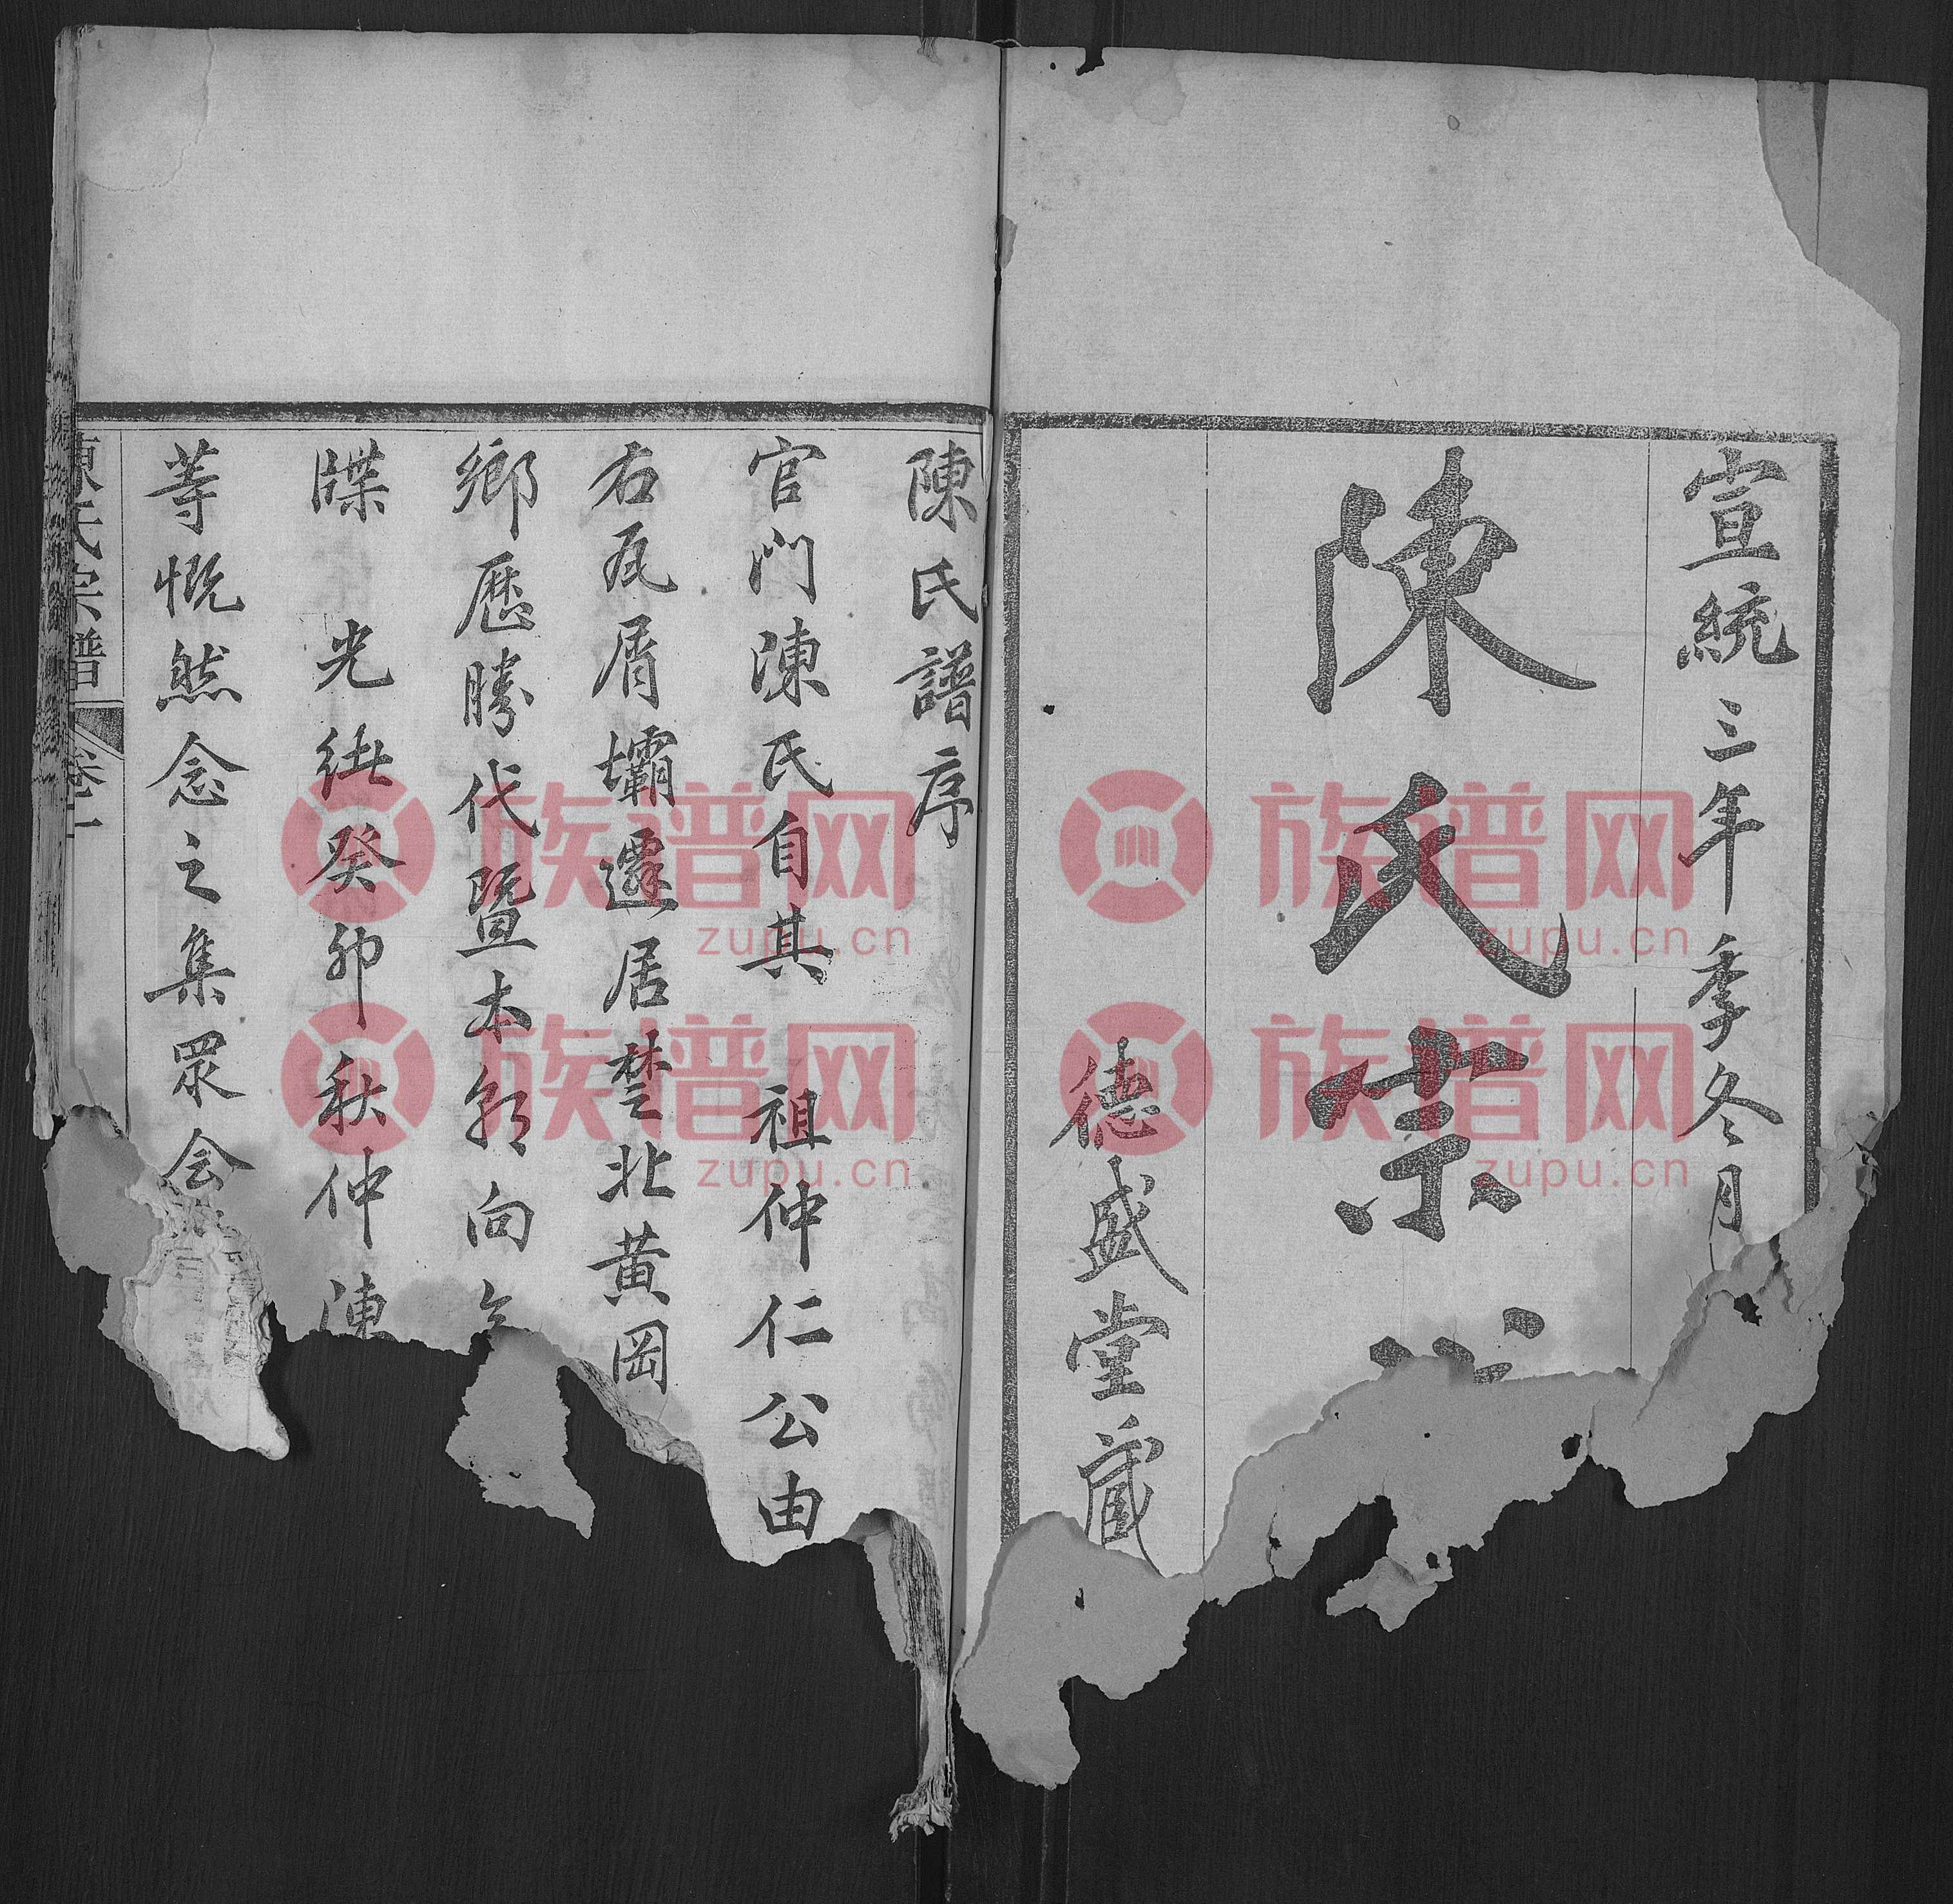 宣統三年季冬月
陳氏宗
德盛堂藏
陳氏譜序
官門陳氏自其 祖仲仁公由
右瓦屑壩遷居楚北黄岡
鄉歷勝代暨本朝向
牒 光緒癸卯秋仲陳
等慨然念之集眾会
陳氏宗譜 卷一
族谱网 zupu.cn
族谱网 zupu.cn
族谱网 zupu.cn
族谱网 zupu.cn